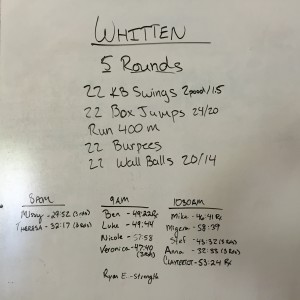 WHITTEN
5 Rounds
22 KB Swings 2pood/1.5
22 Box Jumps 24/20
Run 400 m
22 Burpees
22 Wall Balls 20/14
8AM
- 29:52 (3 RDS)
THERESA - 32:17 (3 RDS)
9AM
Ben - 49:22 Rx
Luke - 49:44
Nicole - 57:58
Veronica - 47:40
(3RDS)
Ryan E. - Strength
1030AM
Mike - 46:41 Rx
- 58:39
Stef - 43:32 (3 RDS)
Anna - 32:33 (3 RDS)
- 53:24 Rx